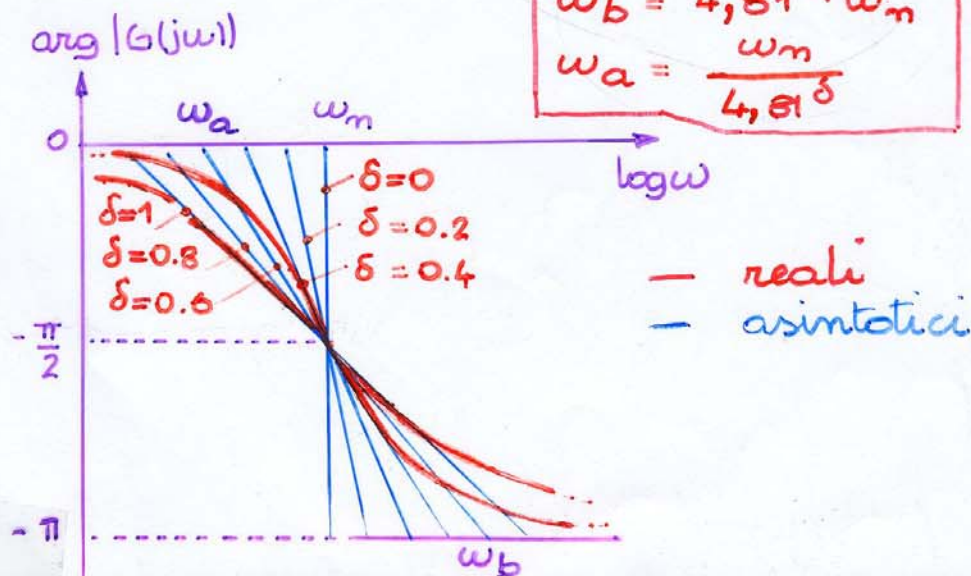 ω_b = 4,81 · ω_n
ω_a = ω_n / 4,81^δ
arg |G(jω))
ω_a ω_n
0
log ω
δ=0
δ = 0.2
δ = 0.4
δ=1
δ=0.8
δ=0.6
— reali
— asintotici
- π/2
- π
ω_b